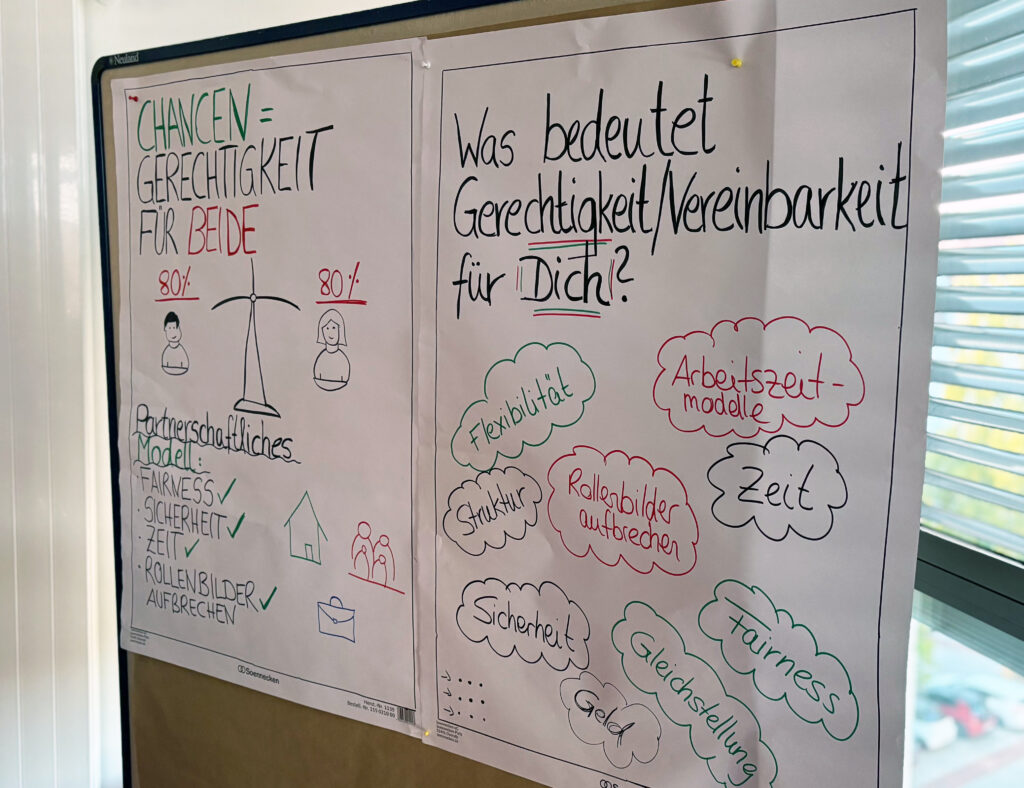 Neuland
CHANCEN =
GERECHTIGKEIT
FÜR BEIDE
80%
80%
Partnerschaftliches
Modell:
· FAIRNESS ✓
· SICHERHEIT ✓
· ZEIT ✓
· ROLLENBILDER ✓
AUFBRECHEN
Soennecken
Was bedeutet
Gerechtigkeit/Vereinbarkeit
für Dich?
Flexibilität
Arbeitszeit-
modelle
Struktur
Rollenbilder
aufbrechen
Zeit
Sicherheit
Fairness
Gleichstellung
Geld